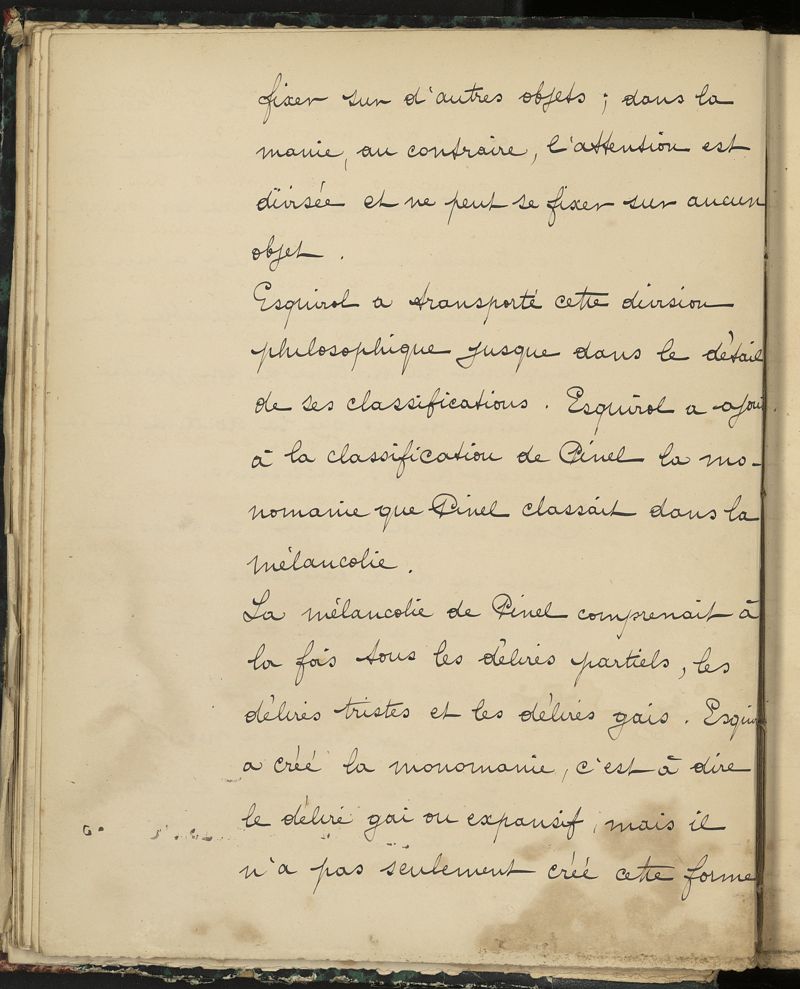 fixer sur d'autres objets ; dans la
manie, au contraire, l'attention est
divisée et ne peut se fixer sur aucun
objet .
Esquirol a transporté cette division
philosophique jusque dans le détail
de ses classifications . Esquirol a ajou
à la classification de Pinel la mo-
nomanie que Pinel classait dans la
mélancolie .
La mélancolie de Pinel comprenait à
la fois tous les délires partiels, les
délires tristes et les délires gais . Esquir
a créé la monomanie, c'est à dire
le délire gai ou expansif, mais il
n'a pas seulement créé cette forme